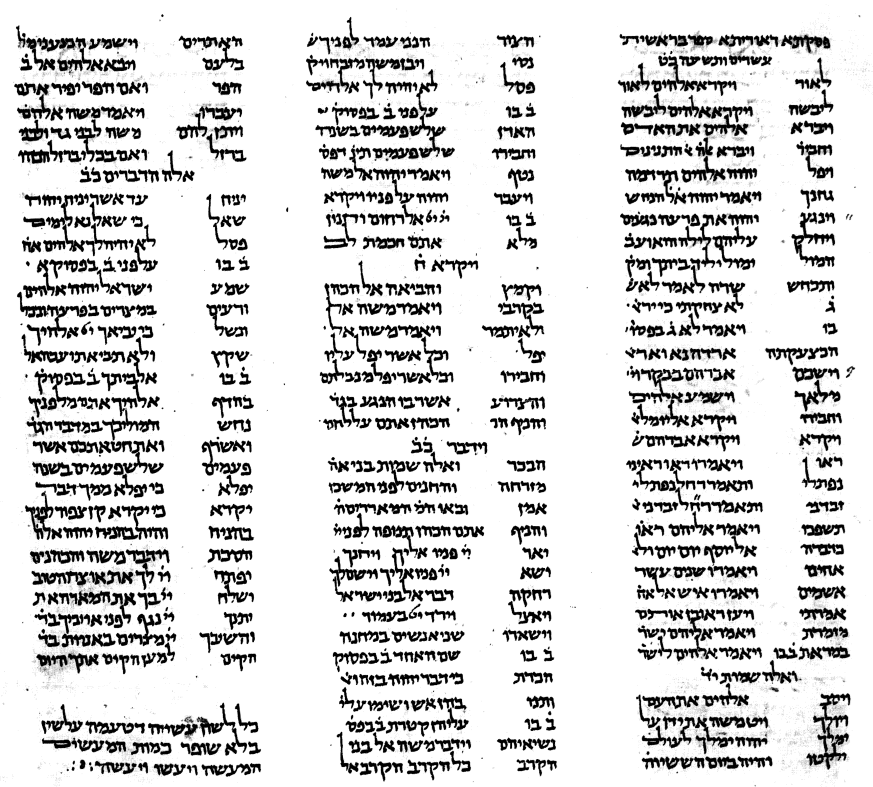 פסקתא דאוריתא ספר בראשית
עשרים ותשעה כט
לאור ויקרא אלהים לאור
ליבשה ויקרא אלהים ליבשה
ויברא אלהים את האדם
וחביר ויברא התנינים
ויפל יהוה אלהים תרדמה
גחנך ויאמר יהוה אל הנחש
וינגע יהוה את פרעה נגעים
ויחלק עליהם לילה הוא ועב
המול ימול יליד ביתך ומק
ותכחש שרה לאמר לא
ג לא צחקתי כי ירא
בו ויאמר לא ג בפסו
הכצעקתה ארדה נא וארא
וישכם אברהם בבקר וי
מלאך וישמע אלהים
וחביר ויקרא אליו מלא
ויקרא ויקרא אברהם ש
ראו ויאמרו ראו ראינו
נפתלי ותאמר רחל נפתלי
זבדני
תשפכו ויאמר אליהם ראו
כדבריה אל יוסף יום יום ול
אחים ויאמרו שנים עשר
אשמים ויאמרו איש אל אח
אמרתי ויען ראובן אותם
מזמרת ויאמר אליהם ישר
במראת ב בו ויאמר אלהים לישר
ואלה שמות יד
ויסב אלהים את העם
ויולך ויט משה את ידו על
ימלך יהוה ימלך לעולם
ילקטו והיה ביום הששי והי
הציר הנני עמד לפניך ש
נסי ויבן משה מזבח ויק
פסל לא יהיה לך אלהים
ב בו על פני ב בפסוק
הארז שלש פעמים בשנה
וחבירו שלש פעמים תינ דפס
נטף ויאמר יהוה אל משה
ויעבר יהוה על פניו ויקרא
ב בו יי יט אל רחום וחנון
מלא אתם חכמת לב
ויקרא ח
וקמץ והביאה אל הכהן
בקרבי ויאמר משה אל
ולאיתמר ויאמר משה אל
יפל וכל אשר יפל עליו
וחבירו וכל אשר יפל מנבלתם
והצרוע אשר בו הנגע בגד
והניף הכהן אתם על לחם
וידבר כב
הבכר ואלה שמות בני אה
מזרחה והחנים לפני המשכן
אמן ובאו המים המאררים
והניף אתם הכהן תנופה לפני
יאר יי פניו אליך ויחנך
ישא יי פניו אליך וישם לך
רחקה דבר אל בני ישראל
ויאצל וירד יט בעמוד
וישארו שני אנשים במחנה
ב בו שם האחד ב בפסוק
חברת כי דבר יהוה בזה וא
ותנו בהן אש ושימו עלי
ב בו עליהן קטרת ב בפס
נשיאיהם וידבר משה אל בני
הקרב כל הקרב הקרב אל
האתרים וישמע הכנעני מ
בלעם ויבא אלהים אל ב
הפר ואם הפר יפיר אתם
יעברו ויאמר משה אלהם
ויתן להם משה לבני גד ולבני
ברזל ואם בכלי ברזל הכהו
אלה הדברים כב
יניח עד אשר יניח יהוה
שאל כי שאל נא לימים
פסל לא יהיה לך אלהים אח
ב בו על פני ב בפסוק
שמע וישראל יהוה אלהים
ורעים במצרים בפרעה ובכל
ונשל כי יביאך יט אלהיך
שקץ ולא תביא תועבה אל
ב בו אל ביתך ב בפסוק
בהדף אלהיך אתם מלפניך
נחש המוליכך במדבר הגד
ואשרף ואת חטאתכם אשר
פעמים שלש פעמים בשנה
יפלא כי יפלא ממך דבר
יקרא כי יקרא קן צפור לפניך
בהניח והיה בהניח יהוה אלה
הסכת וידבר משה והכהנים
יפתח יי לך את אוצרו הטוב
ישלח יי בך את המארה את
יתנך יי נגף לפני אויביך בד
והשיבך יי מצרים באניות בד
הקים למען הקים אותך היום
כל לשון עשויה דטעמה עלשין
בלא שופר כמות המעשים
המעשה ויעשו ויעשה